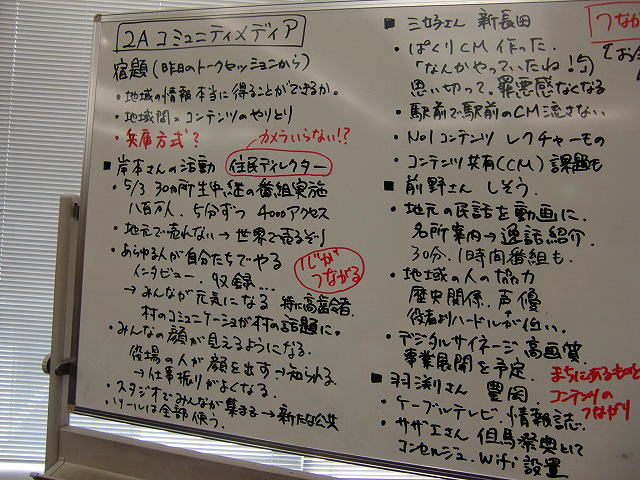 2A コミュニティメディア
宿題(昨日のトークセッションから)
・地域の情報本当に得ることができるか。
・地域間のコンテンツのやりとり
・兵庫方式?
カメラいらない!?
■岸本さんの活動 住民ディレクター
・5/3 30ヵ所生中継の番組実施
八百万人、5分ずつ 4000アクセス
・地元で売れない→世界で売るぞり
・あらゆる人が自分たちでやる
インタビュー、収録…
→みんなが元気になる 特に高齢者。
村のコミュニケーションが村の話題に。
心が
つながる
・みんなの顔が見えるようになる。
役場の人が顔を出す→知られる
→仕事振りがよくなる。
・スタジオでみんなが集まる→新たな公共
・ツールは全部使う。
■三好さん 新長田
・ぱくりCM作った.
「なんかやっていたね!」
思い切って。罪悪感なくなる
・駅前で駅前のCM流さない
・No1コンテンツ レクチャーもの
・コンテンツ共有(CM)課題も
■前野さん しそう.
・地元の民話を動画に.
名所案内→逸話紹介.
30分、1時間番組も.
・地域の人の協力
歴史関係、声優
役者よりハードルが低い.
・デジタルサイネージ、高画質.
事業展開を予定.
■羽渕さん 豊岡.
・ケーブルテレビ、情報誌.
・サザエさん 但馬祭典として
コンセルジュ. Wifi 設置
まちにあるものと
コンテンツの
つながり
つなか